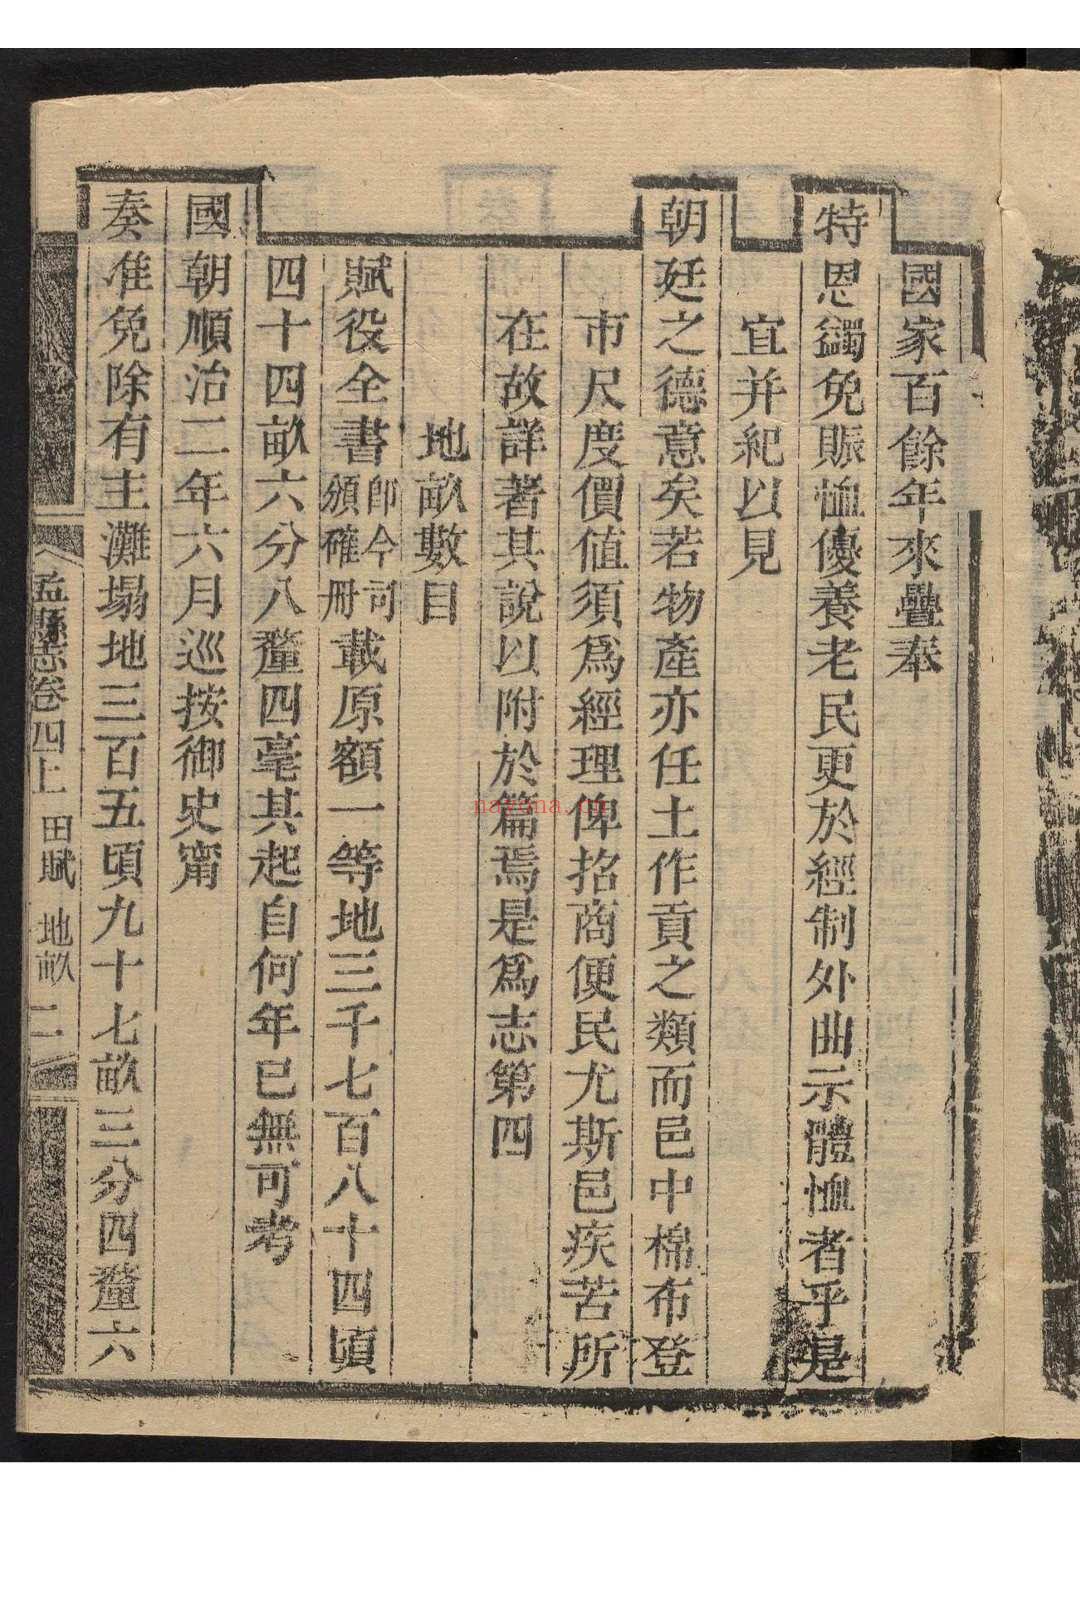 國家百餘年來疊奉
特恩蠲免賑恤優養老民更於經制外曲示體恤者乎是
宜并紀以見
朝廷之德意矣若物產亦任土作貢之類而邑中棉布登
市尺度價值須爲經理俾招商便民尤斯邑疾苦所
在故詳著其說以附於篇焉是爲志第四
地畝數目
賦役全書卽今司頒確冊載原額一等地三千七百八十四頃
四十四畝六分八釐四毫其起自何年已無可考
國朝順治二年六月巡按御史甯
奏准免除有主灘塌地三百五頃九十七畝三分四釐六
孟縣志卷四上 田賦 地畝 二
nayona.cn